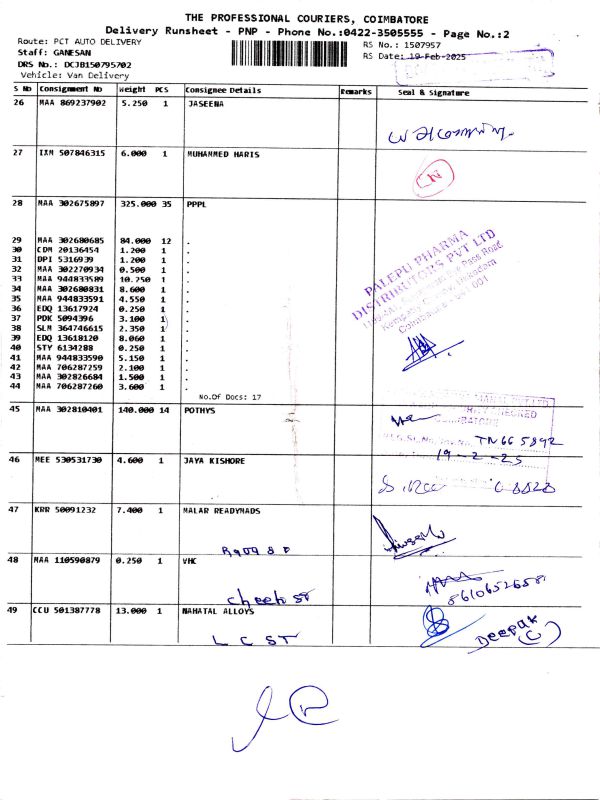 THE PROFESSIONAL COURIERS, COIMBATORE
Delivery Runsheet - PNP - Phone No.:0422-3505555 - Page No.:2
Route: PCT AUTO DELIVERY
RS No.: 1507957
Staff: GANESAN
RS Date: 19-Feb-2025
DRS No.: DCJB150795702
Vehicle: Van Delivery
S No Consignment No Weight PCS Consignee Details Remarks Seal & Signature
26 MAA 869237902 5.250 1 JASEENA
27 IXM 507846315 6.000 1 MUHAMMED HARIS
28 MAA 302675897 325.000 35 PPPL
29 MAA 302680685 84.000 12 .
30 CDM 20136454 1.200 1 .
31 DPI 5316939 1.200 1 .
32 MAA 302270934 0.500 1 .
33 MAA 944833589 10.250 1 .
34 MAA 302680831 8.600 1 .
35 MAA 944833591 4.550 1 .
36 EDQ 13617924 0.250 1 .
37 PDK 5094396 3.100 1 .
38 SLM 364746615 2.350 1 .
39 EDQ 13618120 8.060 1 .
40 STY 6134288 0.250 1 .
41 MAA 944833590 5.150 1 .
42 MAA 706287259 2.100 1 .
43 MAA 302826684 1.500 1 .
44 MAA 706287260 3.600 1 .
No.Of Docs: 17
PALEPU PHARMA
DISTRIBUTORS PVT LTD
45 MAA 302810401 140.000 14 POTHYS
TN66 5892
19-2-25
46 MEE 530531730 4.600 1 JAYA KISHORE
47 KRR 50091232 7.400 1 MALAR READYMADS
48 MAA 110590879 0.250 1 VHC
49 CCU 501387778 13.000 1 MAHATAL ALLOYS
L C ST
Deepak
(C)